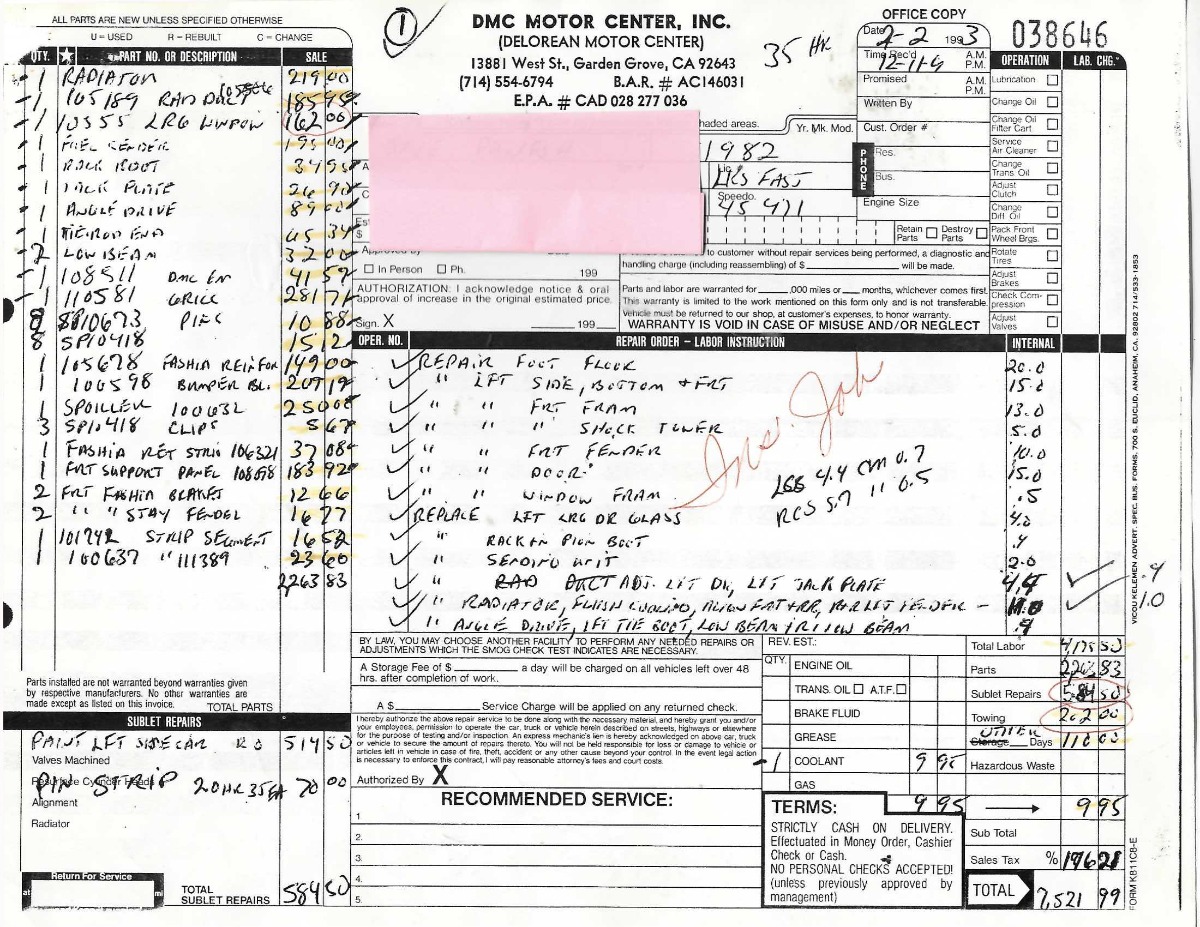 ALL PARTS ARE NEW UNLESS SPECIFIED OTHERWISE
U = USED R = REBUILT C = CHANGE
QTY. PART NO. OR DESCRIPTION SALE
1 RADIATOR 219 00
1 105189 RAD DUCT 185 95
1 10555 LRG WINDOW 162 00
1 FUEL SENDER 195 00
1 RACK BOOT 34 95
1 JACK PLATE 26 90
1 ANGLE DRIVE 89
1 TIE ROD END 65 34
2 LOW BEAM 32 00
1 108511 DMC EM 41 59
1 110581 GRILL 281
8 SP10673 10 88
8 SP10418 15 12
1 105678 FASHIA REINFOR 149 00
1 100598 BUMPER BL. 209 19
1 SPOILLER 100632 250 00
3 SP10418 CLIPS 5 67
1 FASHIA RET STRIN 106321 37 08
1 FRT SUPPORT PANEL 183 92
2 FRT FASHIA BRAKET 12 66
2 " " STAY FENDEL 16 77
1 101742 STRIP SEGMENT 16 52
1 100637 " 111389 23 60
2263 83
Parts installed are not warranted beyond warranties given
by respective manufacturers. No other warranties are
made except as listed on this invoice.
TOTAL PARTS
SUBLET REPAIRS
PAINT LFT SIDE CAR 514 50
Valves Machined
Resurface Cylinder Heads
PIN STRIP 2.0 HR 35 EA 70 00
Alignment
Radiator
Return For Service
at mi
TOTAL
SUBLET REPAIRS 584 50
1
DMC MOTOR CENTER, INC.
(DELOREAN MOTOR CENTER)
13881 West St., Garden Grove, CA 92643
(714) 554-6794 B.A.R. # AC146031
E.P.A. # CAD 028 277 036
35 HR
OFFICE COPY
Date 2-2 1993
Time Rec'd 12-11-9 A.M. P.M.
Promised A.M. P.M.
Written By
038646
haded areas.
Yr. Mk. Mod.
Cust. Order #
1982
Lic.
LKS FAST
Speedo.
45 471
PHONE
Res.
Bus.
Engine Size
Retain Parts Destroy Parts
Est
$
Approved By Date
In Person Ph. 199
AUTHORIZATION: I acknowledge notice & oral
approval of increase in the original estimated price.
Sign. X 199
to customer without repair services being performed, a diagnostic and
handling charge (including reassembling) of $ will be made.
Parts and labor are warranted for ,000 miles or months, whichever comes first.
This warranty is limited to the work mentioned on this form only and is not transferable.
Vehicle must be returned to our shop, at customer's expenses, to honor warranty.
WARRANTY IS VOID IN CASE OF MISUSE AND/OR NEGLECT
OPERATION LAB. CHG.
Lubrication
Change Oil
Change Oil Filter Cart
Service Air Cleaner
Change Trans. Oil
Adjust Clutch
Change Diff. Oil
Pack Front Wheel Brgs.
Rotate Tires
Adjust Brakes
Check Compression
Adjust Valves
OPER. NO. REPAIR ORDER – LABOR INSTRUCTION INTERNAL
REPAIR FOOT FLOOR 20.0
" LFT SIDE, BOTTOM & FRT 15.0
" " FRT FRAM 13.0
" " " SHOCK TOWER 5.0
" " FRT FENDER 10.0
" " DOOR 15.0
" " WINDOW FRAM .5
Ins Job
4.4 CM 0.7
5.7 11 0.5
REPLACE LFT LRG DR GLASS
" RACK EN PION BOOT .4
" SENDING UNIT 2.0
" DUCT ADJ. LFT DR, LFT JACK PLATE 4.4 .4
" RADIATOR, FLUSH COOLING, ALIGN 1.0
" ANGLE DRIVE, LFT TIE BOOT, LOW BEAM / R LOW BEAM .9
BY LAW, YOU MAY CHOOSE ANOTHER FACILITY TO PERFORM ANY NEEDED REPAIRS OR
ADJUSTMENTS WHICH THE SMOG CHECK TEST INDICATES ARE NECESSARY.
A Storage Fee of $ a day will be charged on all vehicles left over 48
hrs. after completion of work.
A $ Service Charge will be applied on any returned check.
I hereby authorize the above repair service to be done along with the necessary material, and hereby grant you and/or
your employees, permission to operate the car, truck or vehicle herein described on streets, highways or elsewhere
for the purpose of testing and/or inspection. An express mechanic's lien is hereby acknowledged on above car, truck
or vehicle to secure the amount of repairs thereto. You will not be held responsible for loss or damage to vehicle or
articles left in vehicle in case of fire, theft, accident or any other cause beyond your control. In the event legal action
is necessary to enforce this contract, I will pay reasonable attorney's fees and court costs.
Authorized By X
RECOMMENDED SERVICE:
1
2.
3.
4.
5.
REV. EST.:
QTY.
ENGINE OIL
TRANS. OIL A.T.F.
BRAKE FLUID
GREASE
1 COOLANT 9 95
GAS
9 95
TERMS:
STRICTLY CASH ON DELIVERY.
Effectuated in Money Order, Cashier
Check or Cash.
NO PERSONAL CHECKS ACCEPTED!
(unless previously approved by
management)
Total Labor
Parts 2263 83
Sublet Repairs 584 50
Towing 202 00
OTHER
Storage Days 110 00
Hazardous Waste
9 95
Sub Total
Sales Tax %
TOTAL 7,521 99
VICOU KELEMEN ADVERT. SPEC. BUS. FORMS, 700 S. EUCLID, ANAHEIM, CA. 92802 714/533-1853
FORM K811C8-E